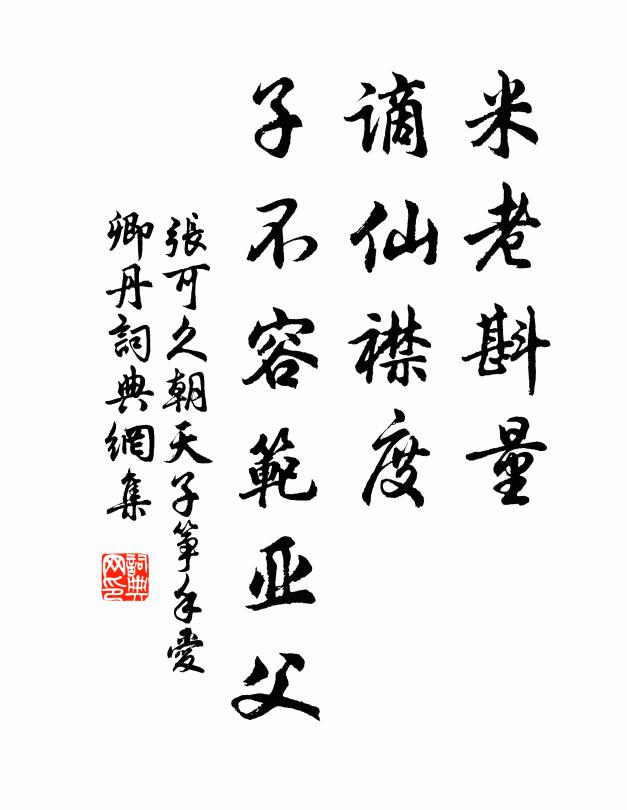 米老斟量
谪仙襟度
子不容範亚父
張可久朝天子筝手愛
卿丹詞典網集
詞典网印